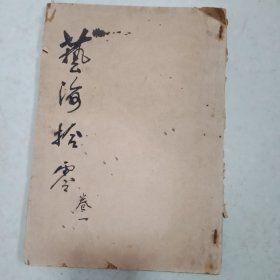 藝海拾零
卷一